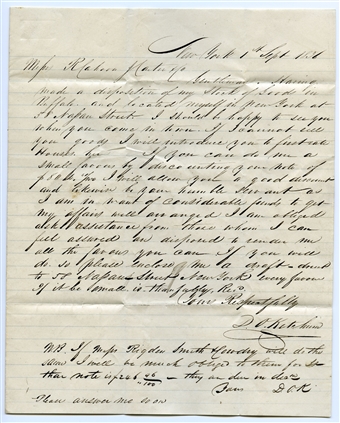 New York 1st Sept
Messrs
Gentlemen Having
made a disposition of my Stock of Goods in
Buffalo and located myself in New York at
58 Nassau Street I should be happy to see you
when you come in town If I cannot sell
you goods I will introduce you to first rate
Houses. If you can do me a
small favour by discounting your note of
I will allow you a good discount
and likewise be your humble Servant as
I am in want of considerable funds to get
my affairs well arranged I am obliged
ask assistance from those whom I can
feel assured are disposed to render me
all the favours they can if you will
do so please enclose me a draft direct
to 58 Nassau Street New York every favour
if it be small is thankfully
Yours Respectfully
D. O.
NB. If Messrs Rigdon Smith & Cowdry will do the
same I will be much obliged to them for
their note is
Yours D O K
Please answer me soon